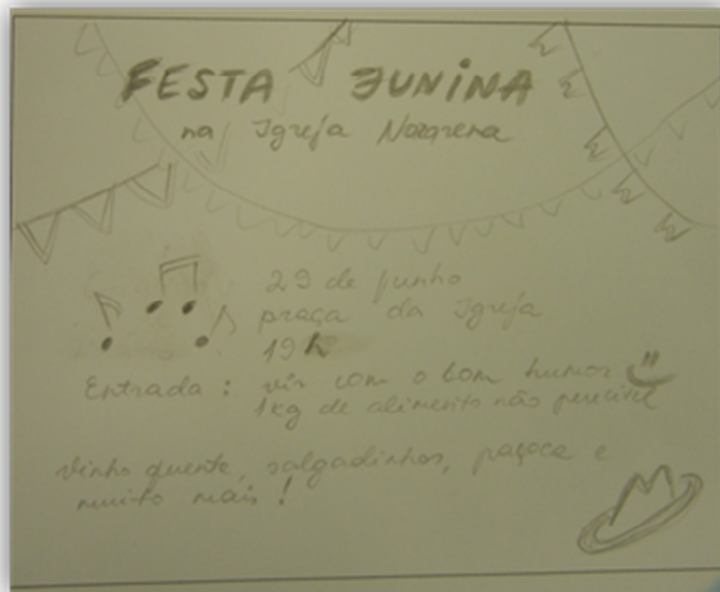 FESTA JUNINA
na Igreja Nazarena
29 de junho
praça da Igreja
19 h
Entrada : vir com o bom humor
1kg de alimento não perecível
vinho quente, salgadinhos, paçoca e
muito mais !